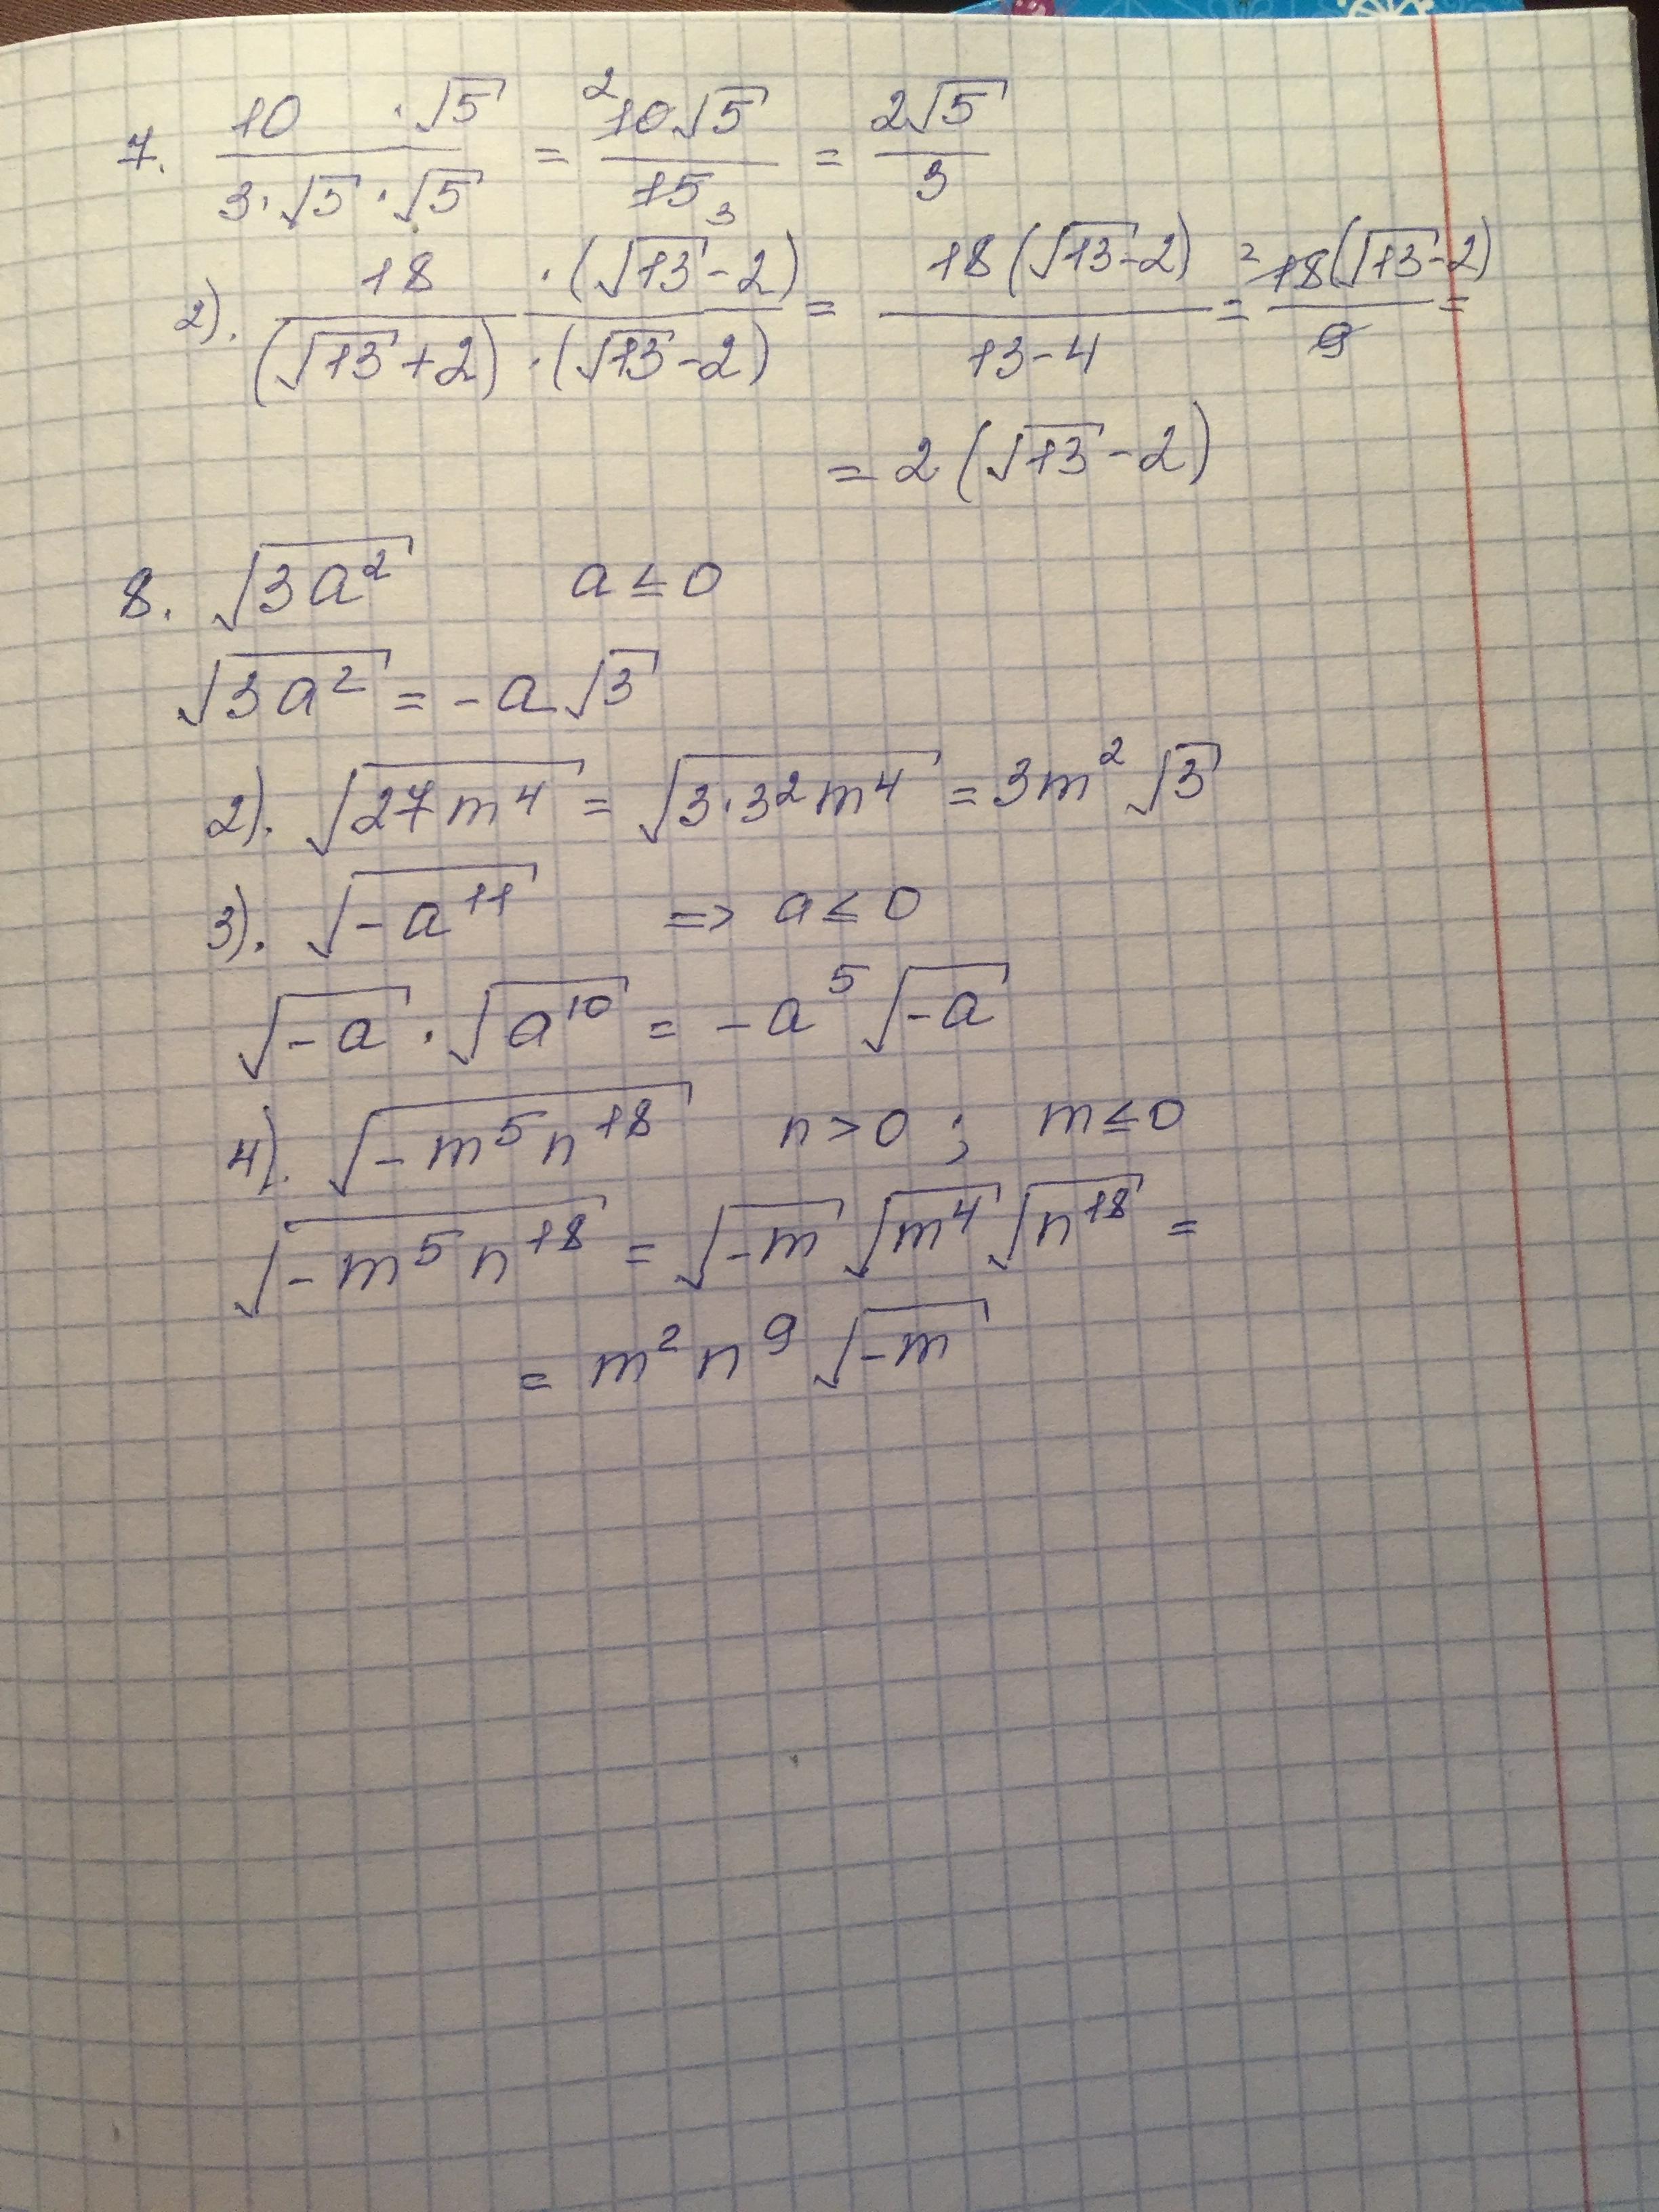 7. 10 · √5 / 3 · √5 · √5 = ²10√5 / 15 ₃ = 2√5 / 3
2). 18 · (√13 - 2) / (√13 + 2) · (√13 - 2) = 18 (√13 - 2) / 13 - 4 = ²18 (√13 - 2) / 9 =
= 2 (√13 - 2)
8. √3a² a ≤ 0
√3a² = -a√3
2). √27m⁴ = √3·3²m⁴ = 3m²√3
3). √-a¹¹ => a ≤ 0
√-a · √a¹⁰ = -a⁵√-a
4). √-m⁵n¹⁸ n > 0 ; m ≤ 0
√-m⁵n¹⁸ = √-m √m⁴ √n¹⁸ =
= m²n⁹√-m